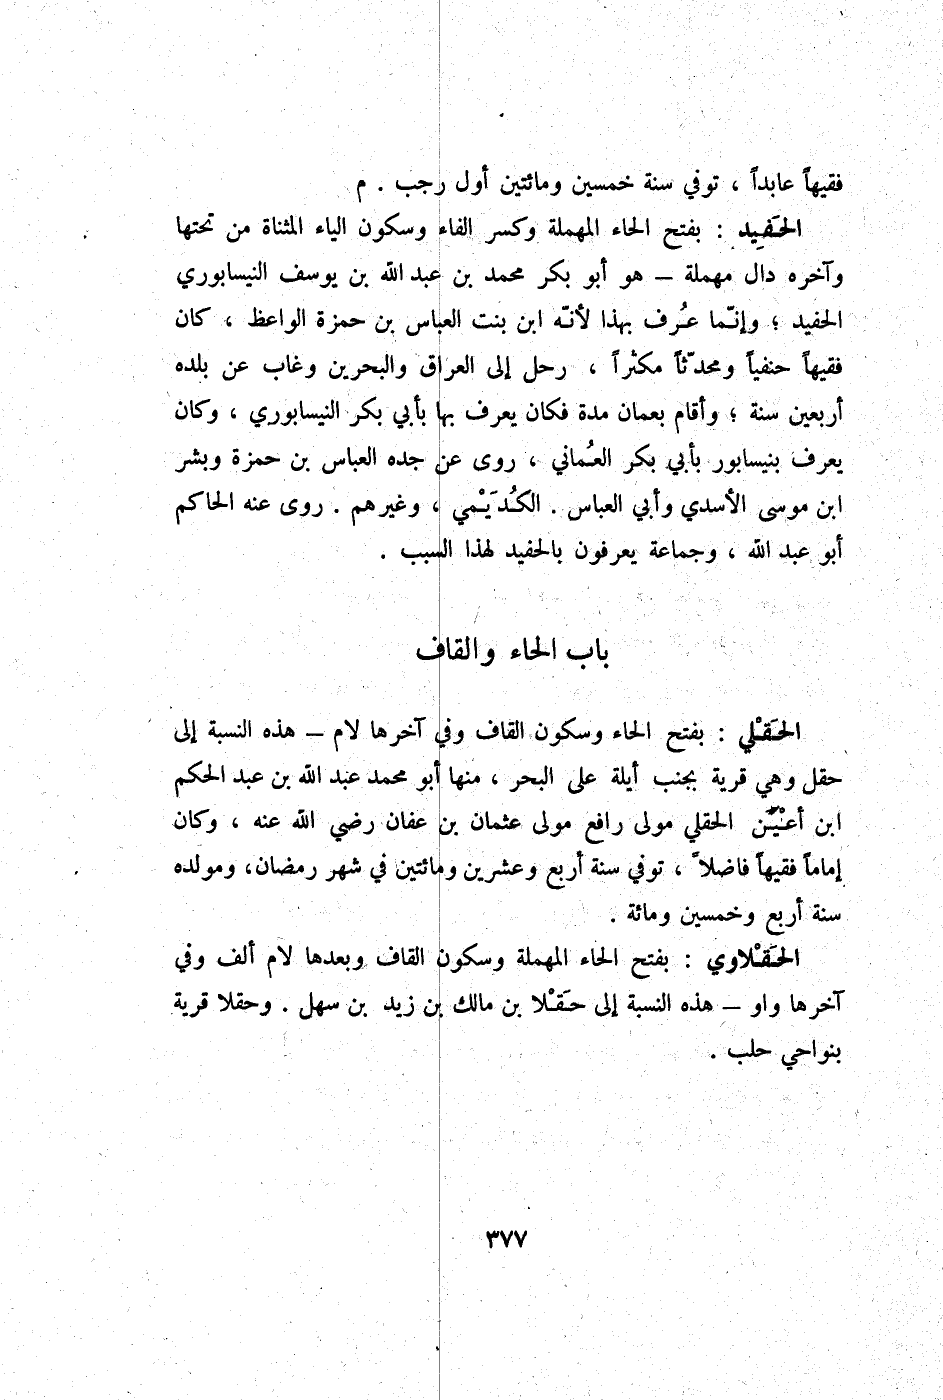 فقيهاً عابداً ، توفي سنة خمسين ومائتين أول رجب . م
الحَفِيد : بفتح الحاء المهملة وكسر الفاء وسكون الياء المثناة من تحتها
وآخره دال مهملة – هو أبو بكر محمد بن عبد الله بن يوسف النيسابوري
الحفيد ؛ وإنّما عُرف بهذا لأنّه ابن بنت العباس بن حمزة الواعظ ، كان
فقيهاً حنفياً ومحدّثاً مكثراً ، رحل إلى العراق والبحرين وغاب عن بلده
أربعين سنة ؛ وأقام بعمان مدة فكان يعرف بها بأبي بكر النيسابوري ، وكان
يعرف بنيسابور بأبي بكر العُماني ، روى عن جده العباس بن حمزة وبشر
ابن موسى الأسدي وأبي العباس . الكُدَيْمي ، وغيرهم . روى عنه الحاكم
أبو عبد الله ، وجماعة يعرفون بالحفيد لهذا السبب .
باب الحاء والقاف
الحَقْلي : بفتح الحاء وسكون القاف وفي آخرها لام – هذه النسبة إلى
حقل وهي قرية بجنب أيلة على البحر ، منها أبو محمد عبد الله بن عبد الحكم
ابن أعْيَن الحقلي مولى رافع مولى عثمان بن عفان رضي الله عنه ، وكان
إماماً فقيهاً فاضلاً ، توفي سنة أربع وعشرين ومائتين في شهر رمضان، ومولده
سنة أربع وخمسين ومائة .
الحَقْلاوي : بفتح الحاء المهملة وسكون القاف وبعدها لام ألف وفي
آخرها واو – هذه النسبة إلى حَقْلا بن مالك بن زيد بن سهل . وحقلا قرية
بنواحي حلب .
٣٧٧